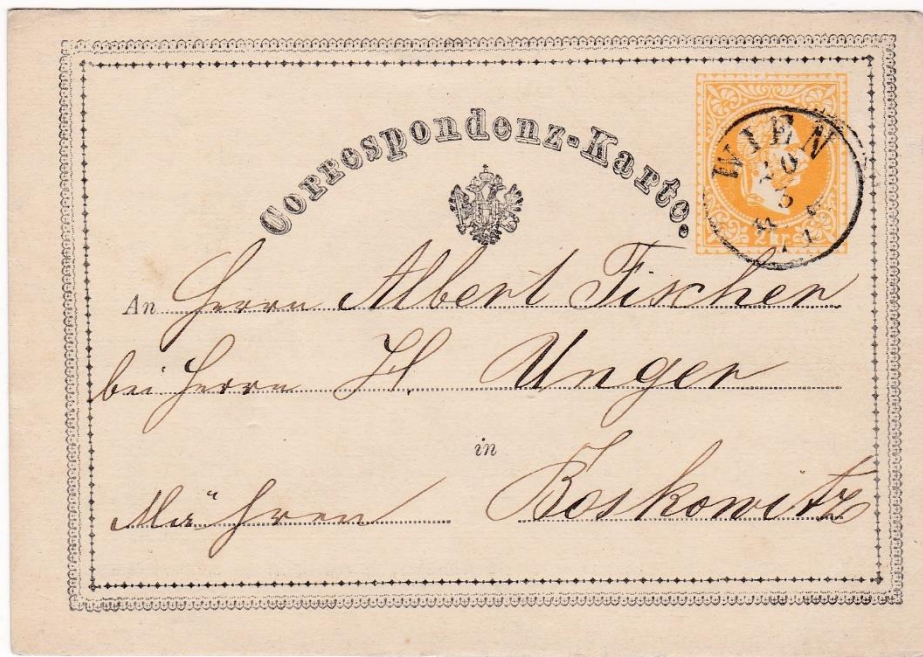 Correspondenz-Karte.
2 kr.
WIEN
An Herrn Albert Fischer
bei Herrn H. Unger
in
Mähren Boskowitz